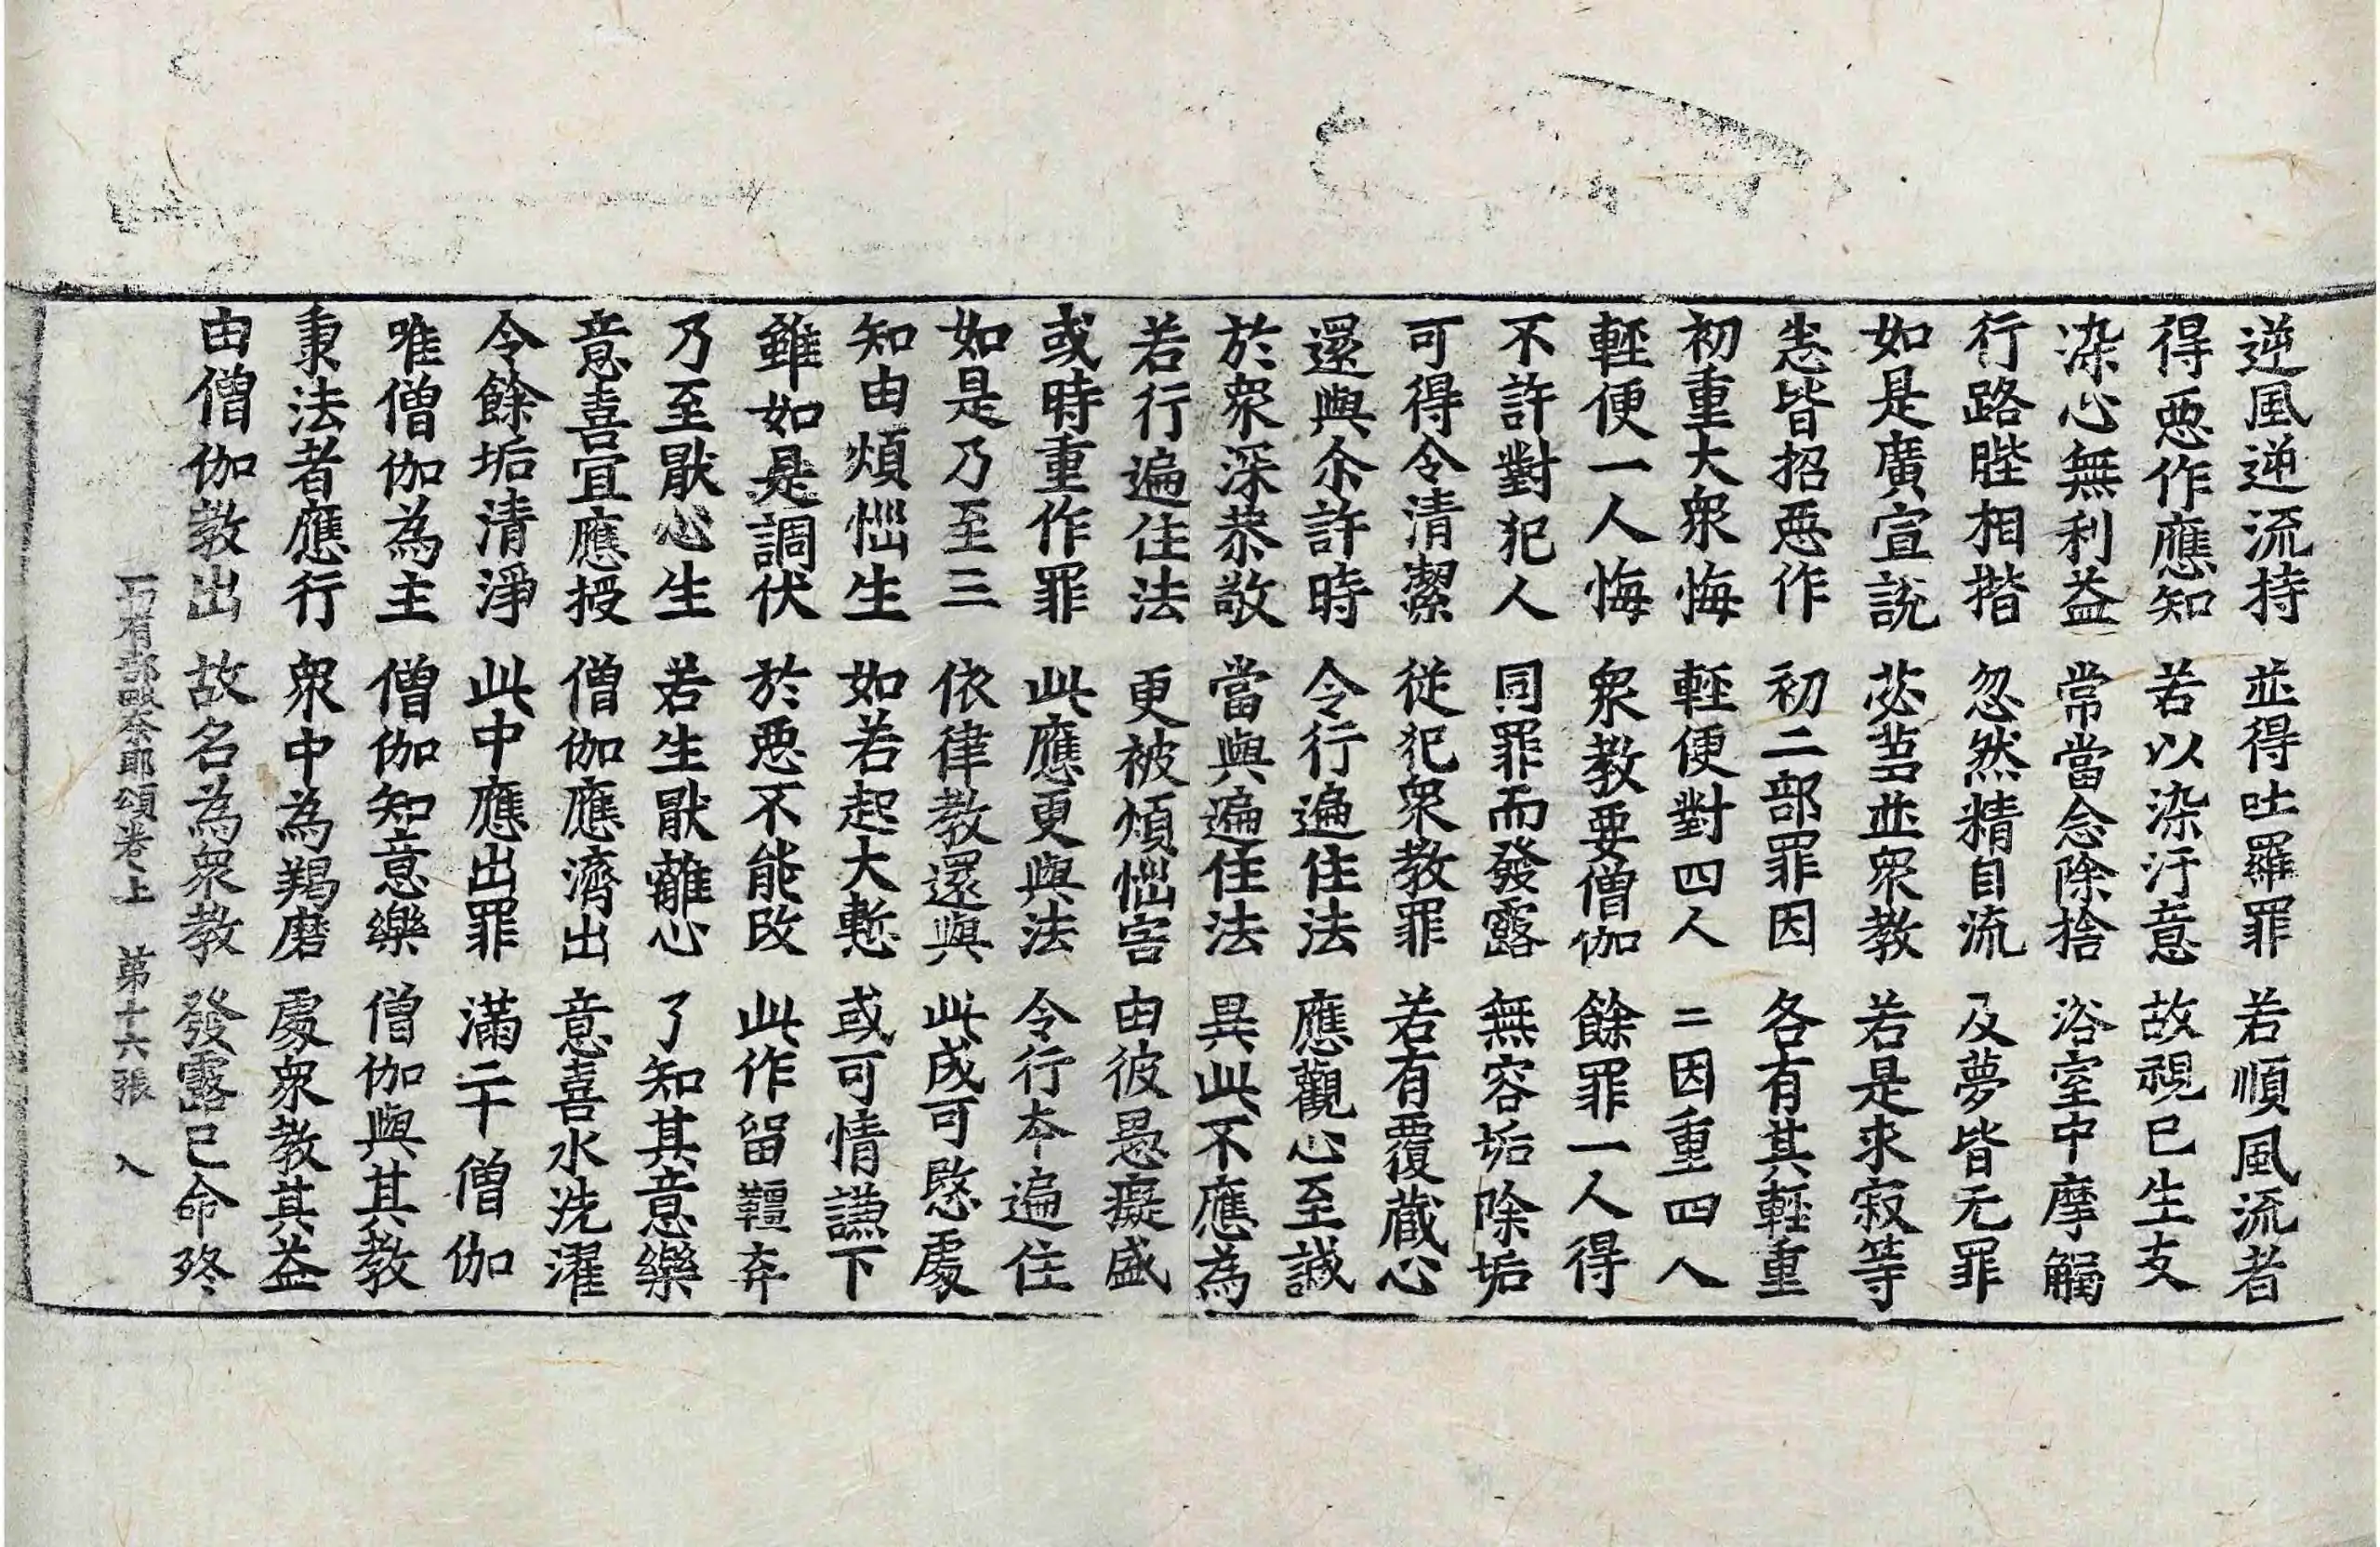 逆風逆流持　並得吐羅罪　若順風流者
得惡作應知　若以染汙意　故視已生支
染心無利益　常當念除捨　浴室中摩觸
行路脞相揩　忽然精自流　及夢皆无罪
如是廣宣說　苾芻並衆教　若是求寂等
恚皆招惡作　初二部罪因　各有其輕重
初重大衆悔　輕便對四人　二因重四人
輕便一人悔　衆教要僧伽　餘罪一人得
不許對犯人　同罪而發露　無容垢除垢
可得令清潔　從犯衆教罪　若有覆藏心
還與尒許時　令行遍住法　應觀心至誠
於衆深恭敬　當與遍住法　異此不應為
若行遍住法　更被煩惱害　由彼愚癡盛
或時重作罪　此應更與法　令行夲遍住
如是乃至三　依律教還與　此成可愍處
知由煩惱生　如若起大慙　或可情謙下
雖如是調伏　於惡不能改　此作留韁弃
乃至厭心生　若生厭離心　了知其意樂
意喜宜應授　僧伽應濟出　意喜水洗濯
令餘垢清淨　此中應出罪　滿二十僧伽
唯僧伽為主　僧伽知意樂　僧伽與其教
秉法者應行　衆中為羯磨　處衆教其益
由僧伽教出　故名為衆教　發露已命終
一切有部毗奈耶頌卷上　第十六張　入